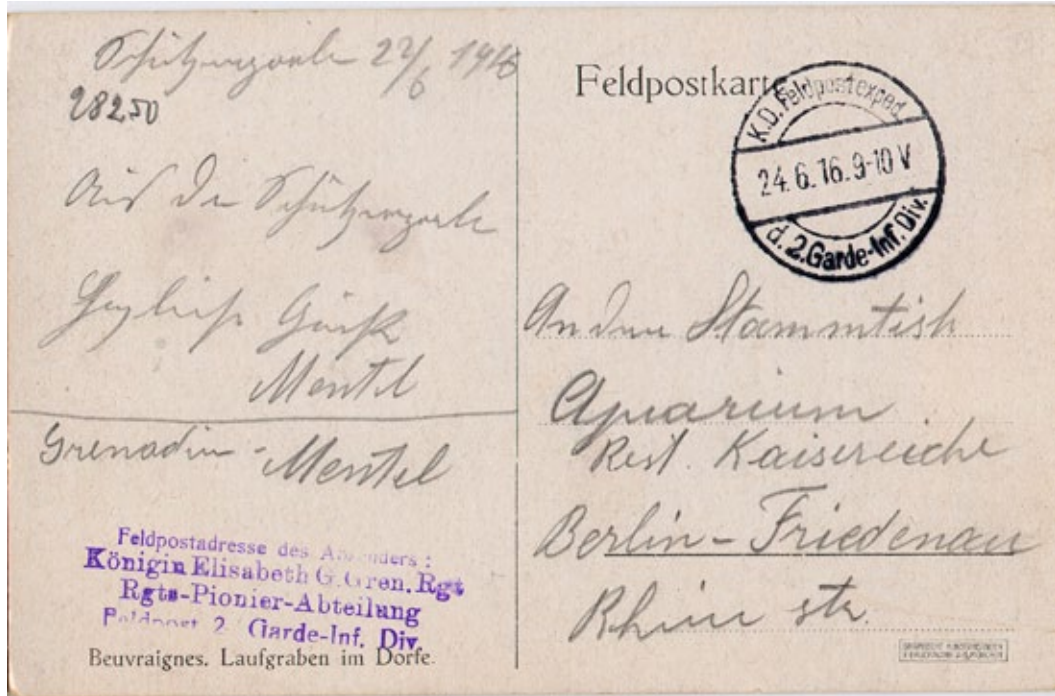 Schützengraben 22/6 1916
28250
Aus dem Schützengraben
Grüße
Mentel
Grenadier Mentel
Feldpostadresse des Absenders:
Königin Elisabeth G. Gren. Rgt
Rgts-Pionier-Abteilung
Feldpost 2. Garde-Inf. Div.
Beuvraignes. Laufgraben im Dorfe.
Feldpostkarte
K.D. Feldpostexped.
24.6.16.9-10 V
d. 2. Garde-Inf. Div.
An den Stammtisch
Aquarium
Rest. Kaisereiche
Berlin-Friedenau
Rhein str.